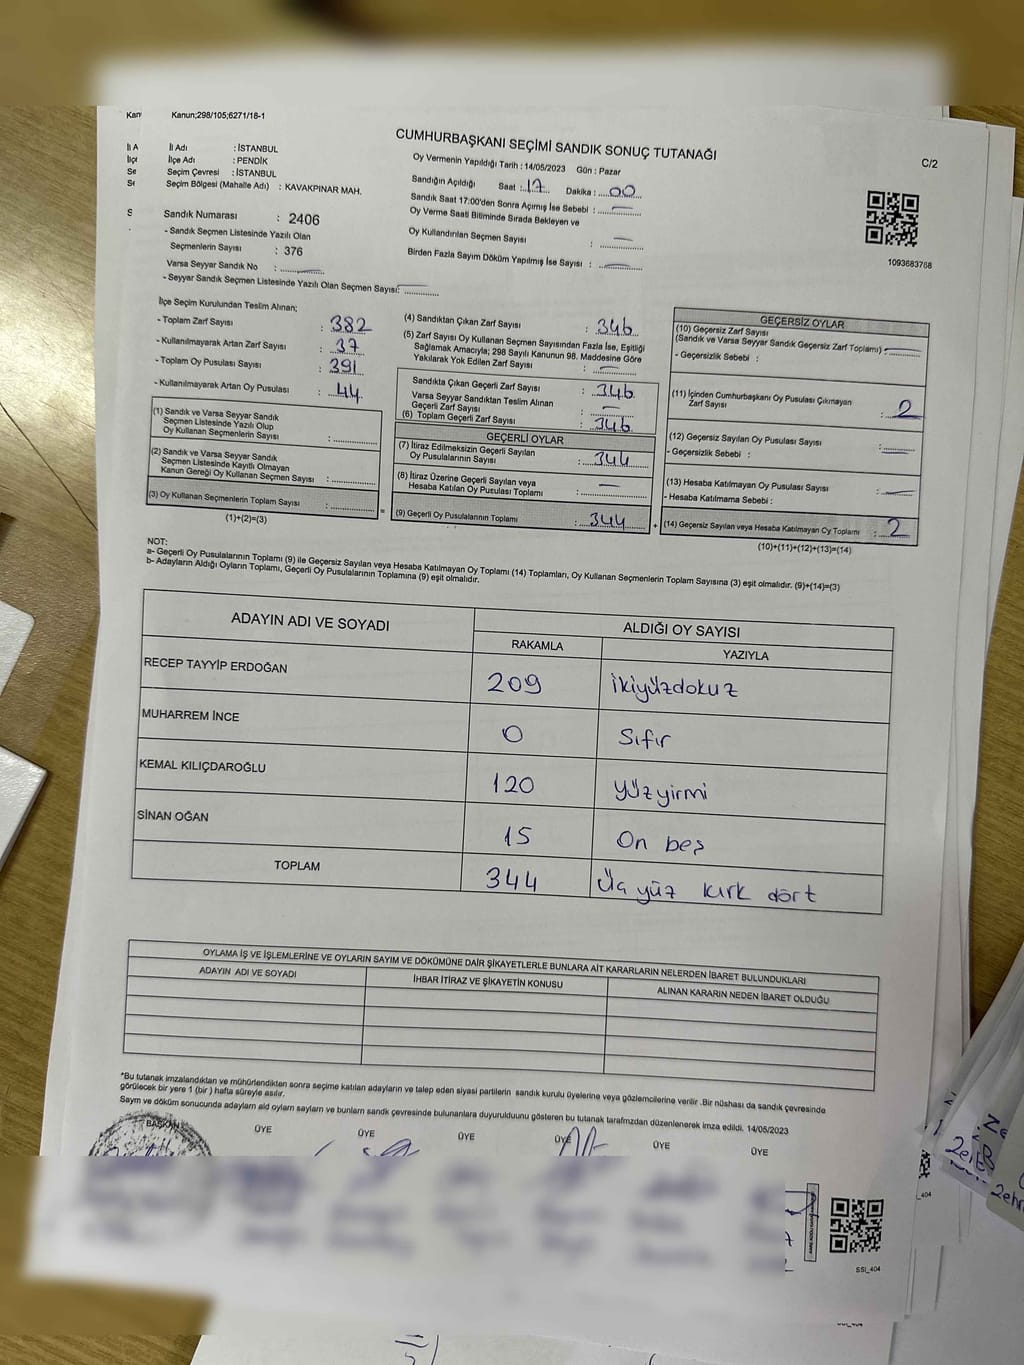 Kanun;298/105;6271/18-1
CUMHURBAŞKANI SEÇİMİ SANDIK SONUÇ TUTANAĞI
C/2
İl Adı : İSTANBUL
İlçe Adı : PENDİK
Seçim Çevresi : İSTANBUL
Seçim Bölgesi (Mahalle Adı) : KAVAKPINAR MAH.
Oy Vermenin Yapıldığı Tarih : 14/05/2023 Gün : Pazar
Sandığın Açıldığı Saat : 17 Dakika : 00
Sandık Saat 17:00'den Sonra Açımış İse Sebebi : —
Oy Verme Saati Bitiminde Sırada Bekleyen ve
Oy Kullandırılan Seçmen Sayısı : —
Birden Fazla Sayım Döküm Yapılmış İse Sayısı : —
1093683768
Sandık Numarası : 2406
- Sandık Seçmen Listesinde Yazılı Olan
Seçmenlerin Sayısı : 376
Varsa Seyyar Sandık No : —
- Seyyar Sandık Seçmen Listesinde Yazılı Olan Seçmen Sayısı: —
İlçe Seçim Kurulundan Teslim Alınan;
- Toplam Zarf Sayısı : 382
- Kullanılmayarak Artan Zarf Sayısı : 37
- Toplam Oy Pusulası Sayısı : 391
- Kullanılmayarak Artan Oy Pusulası : 44
(1) Sandık ve Varsa Seyyar Sandık
Seçmen Listesinde Yazılı Olup
Oy Kullanan Seçmenlerin Sayısı :
(2) Sandık ve Varsa Seyyar Sandık
Seçmen Listesinde Kayıtlı Olmayan
Kanun Gereği Oy Kullanan Seçmen Sayısı :
(3) Oy Kullanan Seçmenlerin Toplam Sayısı :
(1)+(2)=(3)
=
(4) Sandıktan Çıkan Zarf Sayısı : 346
(5) Zarf Sayısı Oy Kullanan Seçmen Sayısından Fazla İse, Eşitliği
Sağlamak Amacıyla; 298 Sayılı Kanunun 98. Maddesine Göre
Yakılarak Yok Edilen Zarf Sayısı : —
Sandıkta Çıkan Geçerli Zarf Sayısı : 346
Varsa Seyyar Sandıktan Teslim Alınan
Geçerli Zarf Sayısı : —
(6) Toplam Geçerli Zarf Sayısı : 346
GEÇERLİ OYLAR
(7) İtiraz Edilmeksizin Geçerli Sayılan
Oy Pusulalarının Sayısı : 344
(8) İtiraz Üzerine Geçerli Sayılan veya
Hesaba Katılan Oy Pusulası Toplamı : —
(9) Geçerli Oy Pusulalarının Toplamı : 344
+
GEÇERSİZ OYLAR
(10) Geçersiz Zarf Sayısı
(Sandık ve Varsa Seyyar Sandık Geçersiz Zarf Toplamı) : —
- Geçersizlik Sebebi :
(11) İçinden Cumhurbaşkanı Oy Pusulası Çıkmayan
Zarf Sayısı : 2
(12) Geçersiz Sayılan Oy Pusulası Sayısı : —
- Geçersizlik Sebebi :
(13) Hesaba Katılmayan Oy Pusulası Sayısı : —
- Hesaba Katılmama Sebebi :
(14) Geçersiz Sayılan veya Hesaba Katılmayan Oy Toplamı : 2
(10)+(11)+(12)+(13)=(14)
NOT:
a- Geçerli Oy Pusulalarının Toplamı (9) ile Geçersiz Sayılan veya Hesaba Katılmayan Oy Toplamı (14) Toplamları, Oy Kullanan Seçmenlerin Toplam Sayısına (3) eşit olmalıdır. (9)+(14)=(3)
b- Adayların Aldığı Oyların Toplamı, Geçerli Oy Pusulalarının Toplamına (9) eşit olmalıdır.
ADAYIN ADI VE SOYADI ALDIĞI OY SAYISI
RAKAMLA YAZIYLA
RECEP TAYYİP ERDOĞAN 209 İkiyüzdokuz
MUHARREM İNCE 0 Sıfır
KEMAL KILIÇDAROĞLU 120 Yüzyirmi
SİNAN OĞAN 15 On beş
TOPLAM 344 Üç yüz kırk dört
OYLAMA İŞ VE İŞLEMLERİNE VE OYLARIN SAYIM VE DÖKÜMÜNE DAİR ŞİKAYETLERLE BUNLARA AİT KARARLARIN NELERDEN İBARET BULUNDUKLARI
ADAYIN ADI VE SOYADI İHBAR İTİRAZ VE ŞİKAYETİN KONUSU ALINAN KARARIN NEDEN İBARET OLDUĞU
*Bu tutanak imzalandıktan ve mühürlendikten sonra seçime katılan adayların ve talep eden siyasi partilerin sandık kurulu üyelerine veya gözlemcilerine verilir .Bir nüshası da sandık çevresinde
görülecek bir yere 1 (bir ) hafta süreyle asılır.
Sayım ve döküm sonucunda adayların aldı oyların sayıların ve bunların sandık çevresinde bulunanlara duyurulduunu gösteren bu tutanak tarafımızdan düzenlenerek imza edildi. 14/05/2023
BAŞKAN ÜYE ÜYE ÜYE ÜYE ÜYE ÜYE
SSİ_404